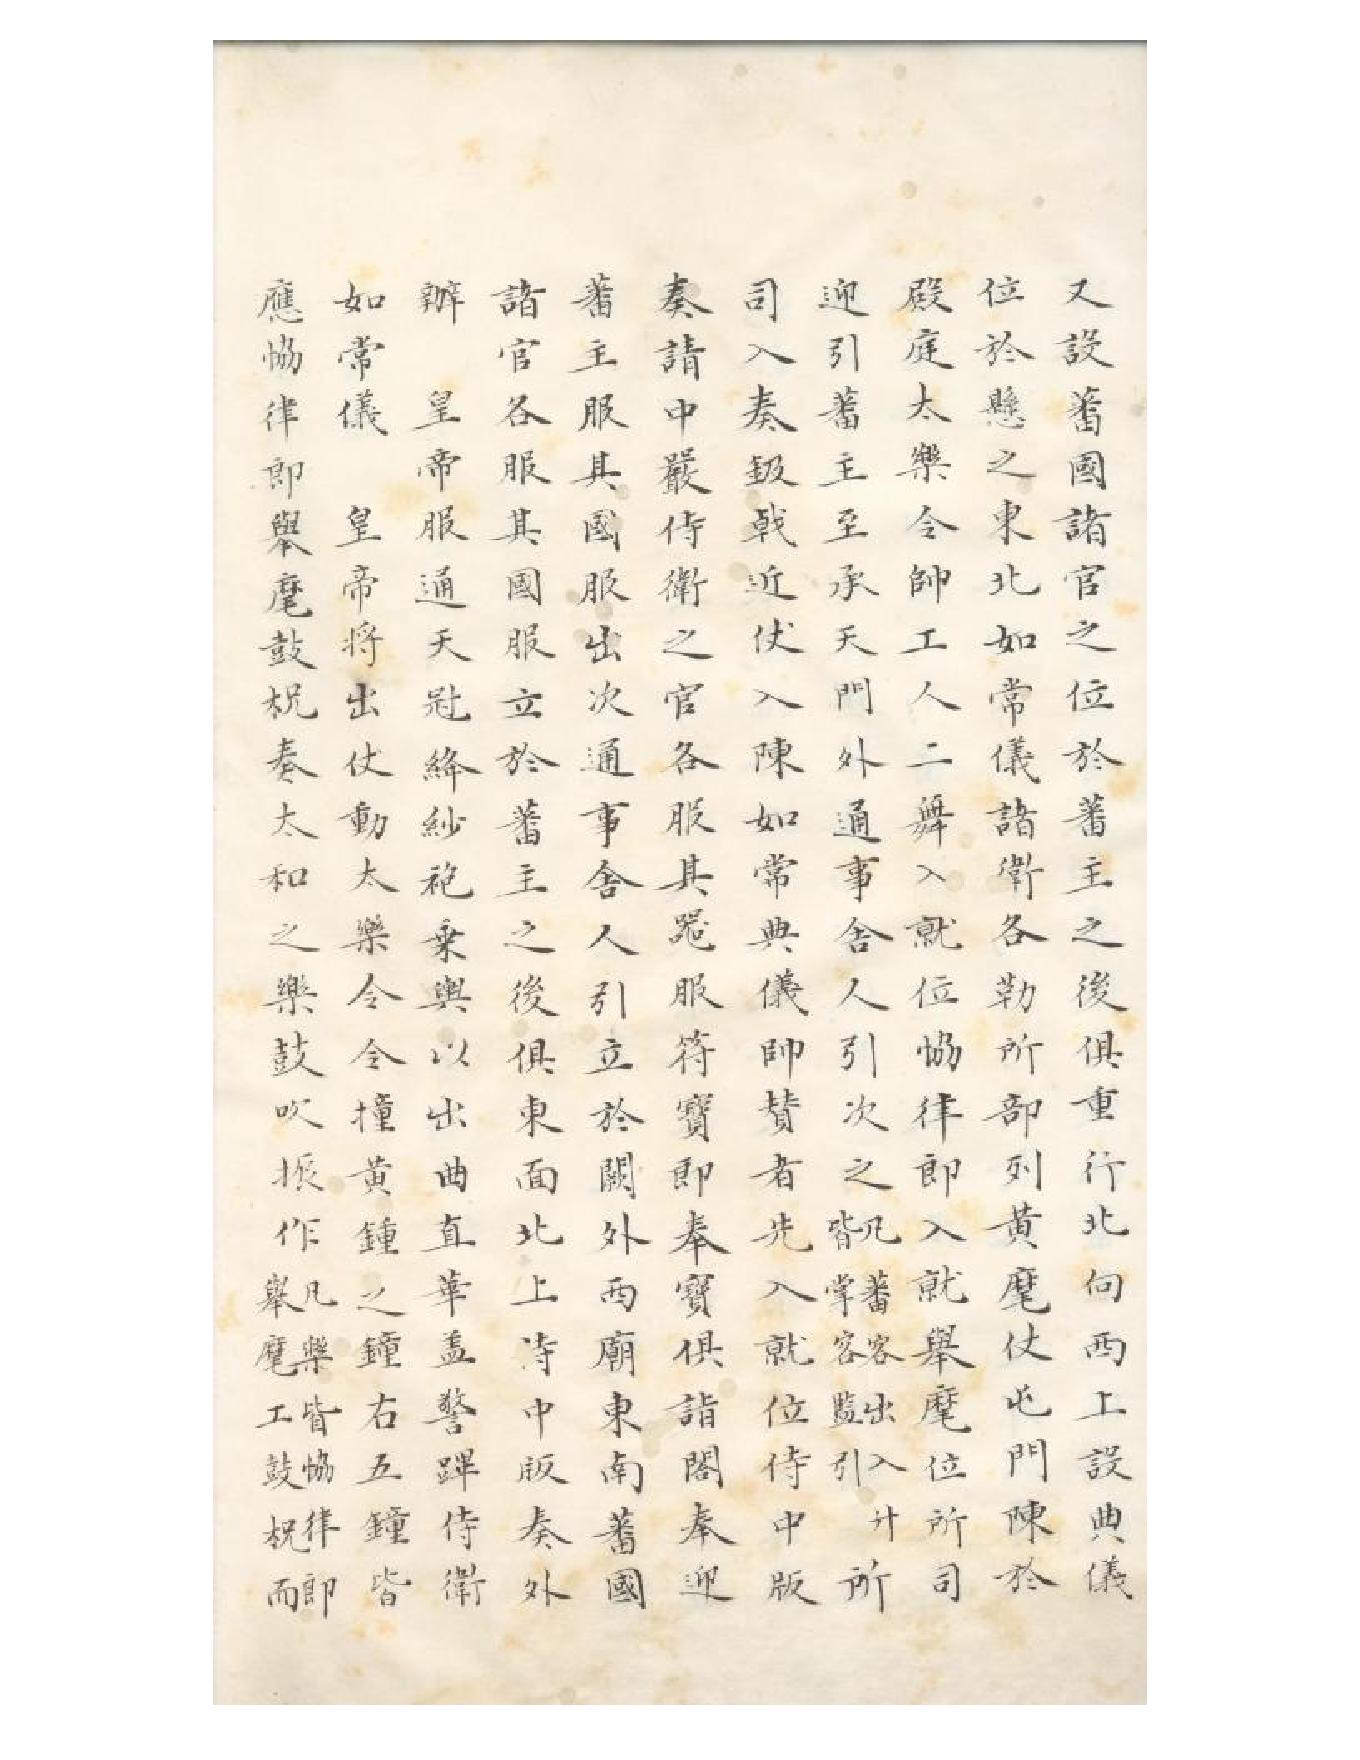 又設蕃國諸官之位於蕃主之後俱重行北向西上設典儀
位於懸之東北如常儀諸衛各勒所部列黃麾仗屯門陳於
殿庭太樂令帥工人二舞入就位恊律郎入就舉麾位所司
迎引蕃主至承天門外通事舍人引次之凡蕃客出入升皆掌客監引所
司入奏鈒戟近仗入陳如常典儀帥贊者先入就位侍中版
奏請中嚴侍衛之官各服其器服符寶郎奉寶俱詣閤奉迎
蕃主服其國服出次通事舍人引立於闕外西廟東南蕃國
諸官各服其國服立於蕃主之後俱東面北上侍中版奏外
辦　皇帝服通天冠絳紗袍乗輿以出曲直華盖警蹕侍衛
如常儀　皇帝將出仗動太樂令令撞黃鍾之鐘右五鐘皆
應恊律郎舉麾鼓柷奏太和之樂鼓吹振作凡樂皆恊律郎舉麾工鼓柷而